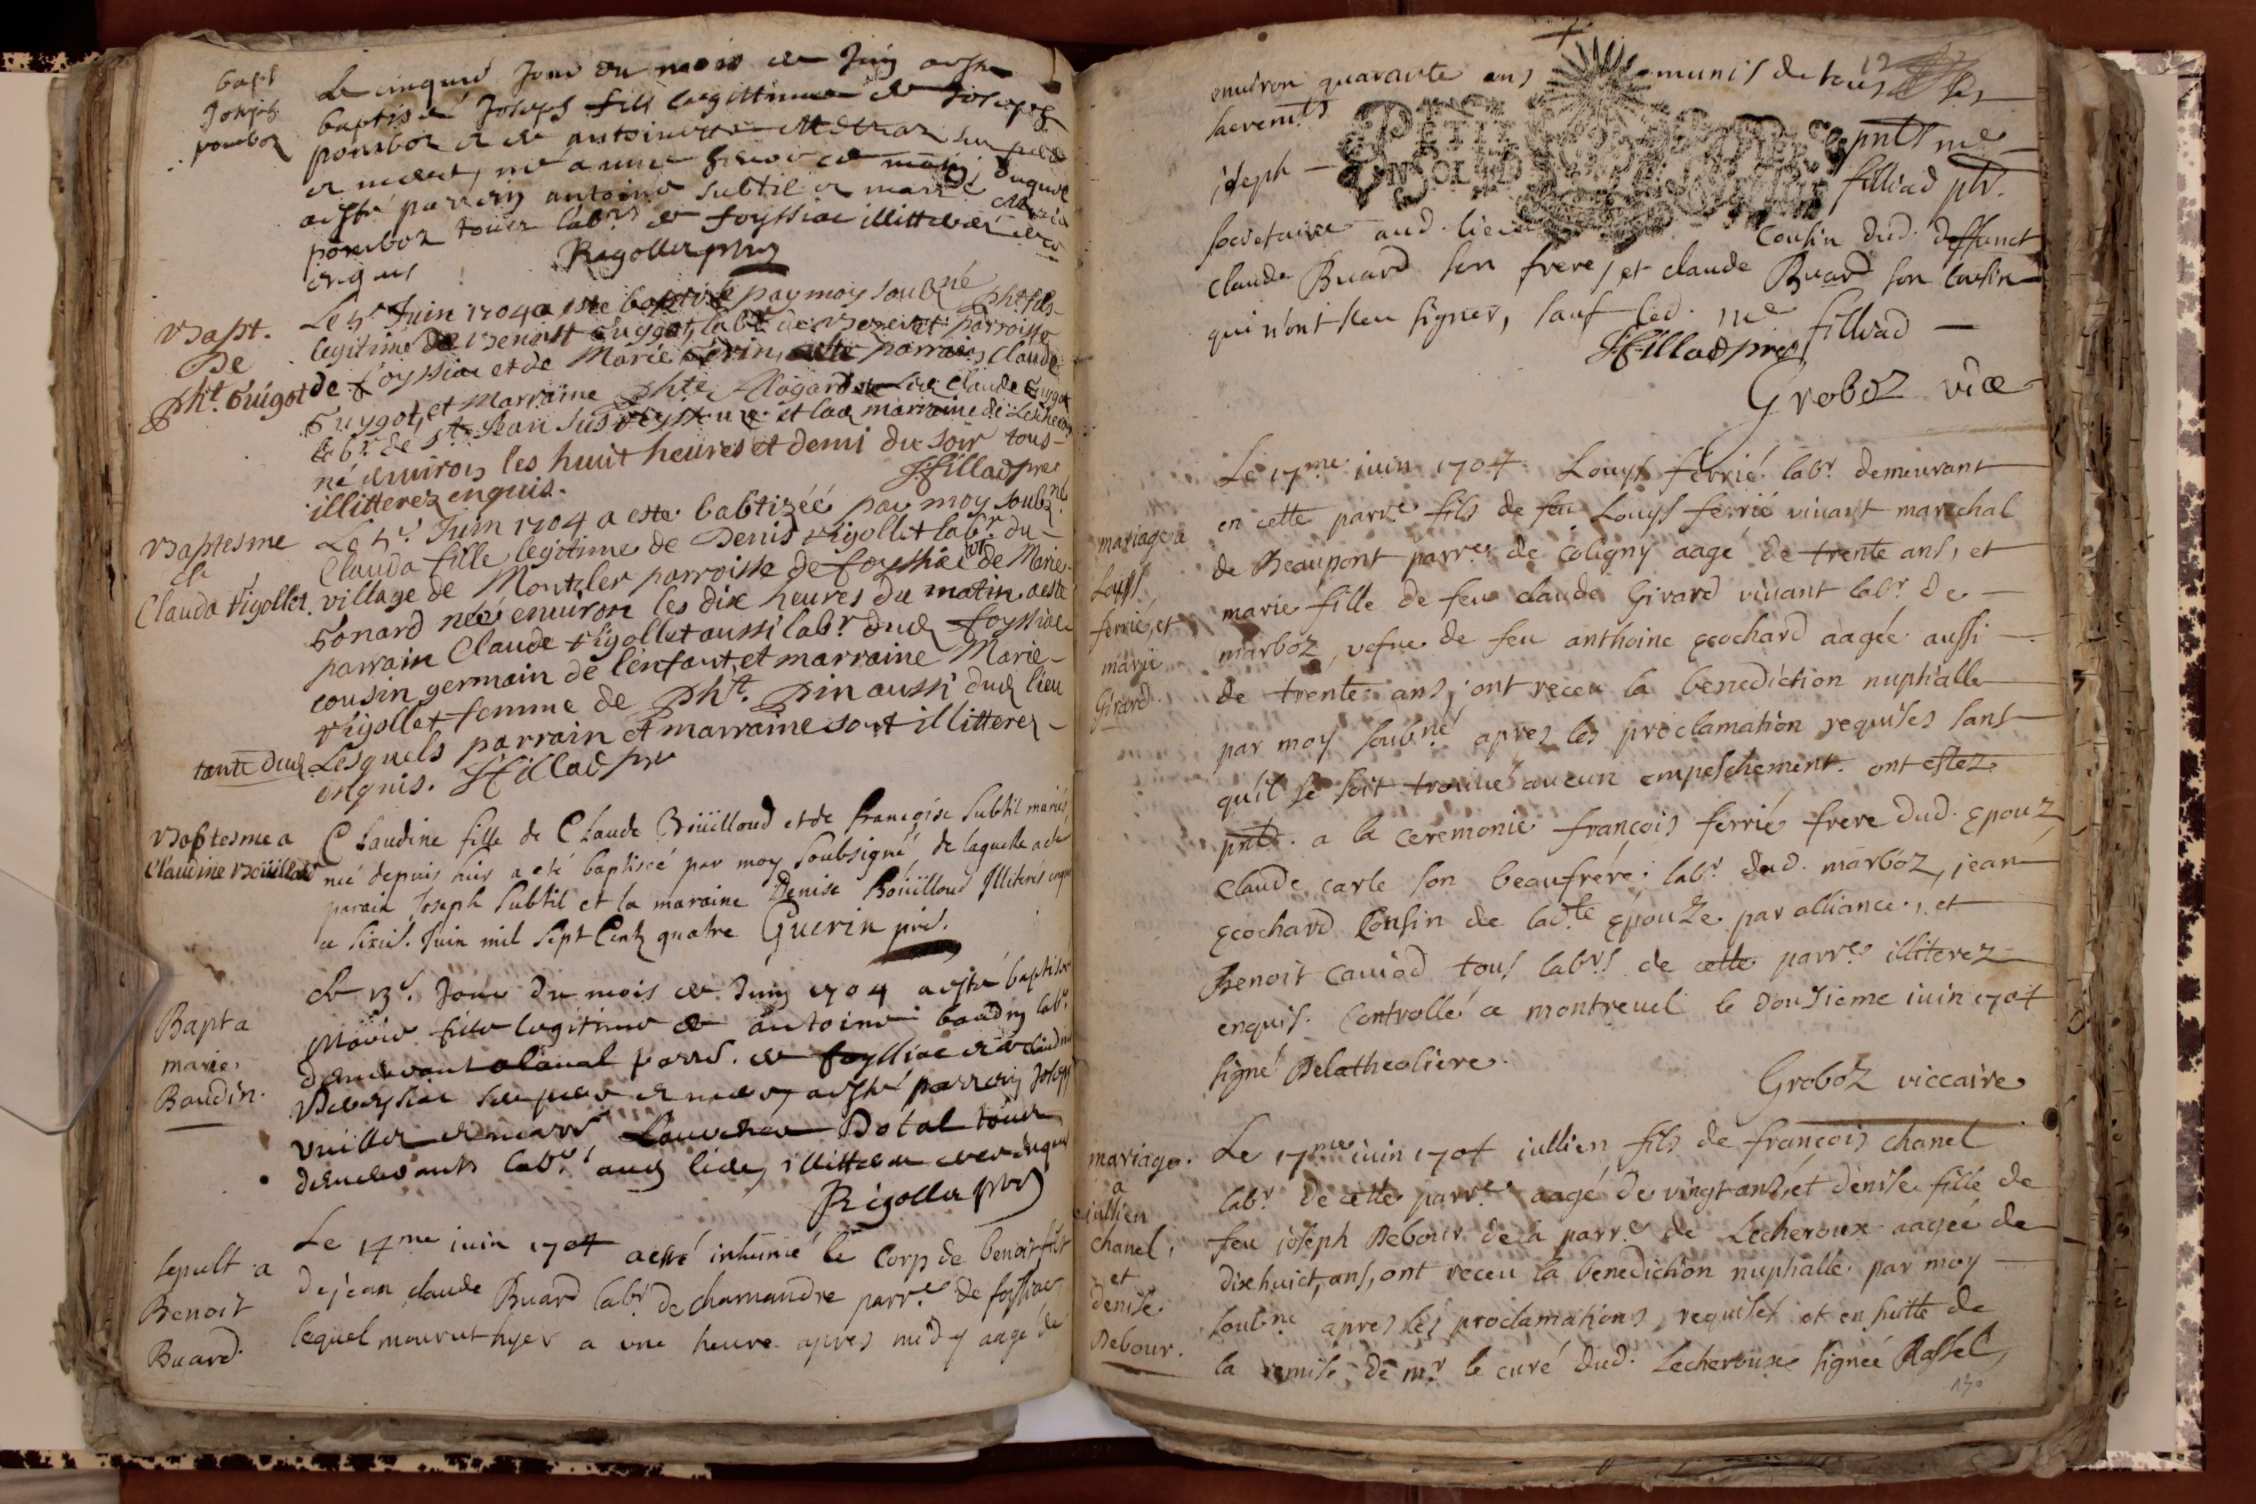 bapt
Joseph
pomboz
Le cinquie Jour du mois de Juin a esté
baptisé Joseph fils legittime de Joseph
pomboz et de antoinette
parrein antoine subtil et marie
pomboz tous labrs de foyssiac illitteres
enquis
Rigollet pbre
Bapt.
De
Pht. Guigot
Le 5e Juin 1704 a esté baptisé par moy soubné Pht fils
legitime de Benoist Guygot, labr de parroisse
de foyssiac et de Marie parrain, Claude
Guygot, et Marraine Phte Claude Guygot
labr de St Jean sus Reyssouze et lad marraine de Lescheroux
né environ les huit heures et demi du soir tous
illitterez enquis. J Fillad pre
Baptesme
a
Clauda Rigollet.
Le 5e Juin 1704 a este babtizéé par moy soubné
Clauda fille legitime de Denis Rigollet labr. du
village de Montzler parroisse de foyssiac et de Marie
Gonard néé environ les dix heures du matin a esté
parrain Claude Rigollet aussi labr dud foyssiac
cousin germain de l'enfant, et marraine Marie
Rigollet femme de Pht. Pin aussi dud lieu
tante dud Lesquels parrain et marraine sont illitterez
enquis. J Fillad pre
Baptesme a
Claudine Boüilloud
Claudine fille de Claude Boüilloud et de Françoise Subtil mariés,
néé depuis hier a eté baptiséé par moy soubsigné, de laquelle a eté
parain Joseph Subtil et la maraine Denise Boüilloud Illiterés enquis
ce sixie. Juin mil sept Cents quatre Guerin pre.
Bapt a
marie
Baudin.
Le 13e. Jour du mois de Juin 1704 a esté baptisée
Marie fille legitime de antoine baudin labr.
demeurant a laval parre. de foyssiac et de Claudine
a esté parrein Joseph
Vuillet et marre Dotal tous
demeurants labrs aud lieu, illitteres enquis
Rigollet pbre
sepult a
Benoit
Buard.
Le 14me iuin 1704 a esté inhumé le Corps de benoit fils
de jean claude Buard labr de chamandre parre de foissiac
lequel mourut hyer a une heure apres midy aage de
12
environ quarante ans munis de tous les
sacremts
PETIT
UN SOL
pnts me
joseph filliad pbr.
societaire aud. lieu Cousin dud. deffunct
Claude Buard son frere, et claude Buard son cousin
qui n'ont sceu signer, sauf led. me filliad
J Fillad pre
Groboz vice
mariage a
Louys
ferrié, et
marie
Girard.
Le 17me iuin 1704 Louys ferrié labr demeurant
en cette parre fils de feu Louys ferrié vivant marechal
de Beaupont parre de coligny aagé de trente ans, et
marie fille de feu claude Girard vivant labr de
marboz, vefue de feu anthoine ecochard aagée aussi
de trente ans, ont receu la benediction nuptialle
par moy soubné apres les proclamation requises sans
qu'il se soit trouué aucun empeschement. ont estez
pnts. a la ceremonie françois ferrié frere dud. Epoux
Claude carle son beaufrére, labr dud. marboz, jean
ecochard Cousin de ladte épouze par alliance, et
Benoit caviod tous labrs de cette parre illiterez
enquis. Controllé a montrevel le douzieme iuin 1704
signé Delatheoliere.
Groboz viccaire
mariage.
a
jullien
chanel,
et
denise
Debour.
Le 17me iuin 1704 iullien fils de françois chanel
labr de cette parre aagé de vingt ans, et denise fille de
feu joseph Debour de la parre de Lecheroux aagée de
dixhuict, ans, ont receu la benediction nuptialle par moy
soubné apres les proclamations requises et en suitte de
la remise de mr le curé dud. Lecheroux signéé Rassel,